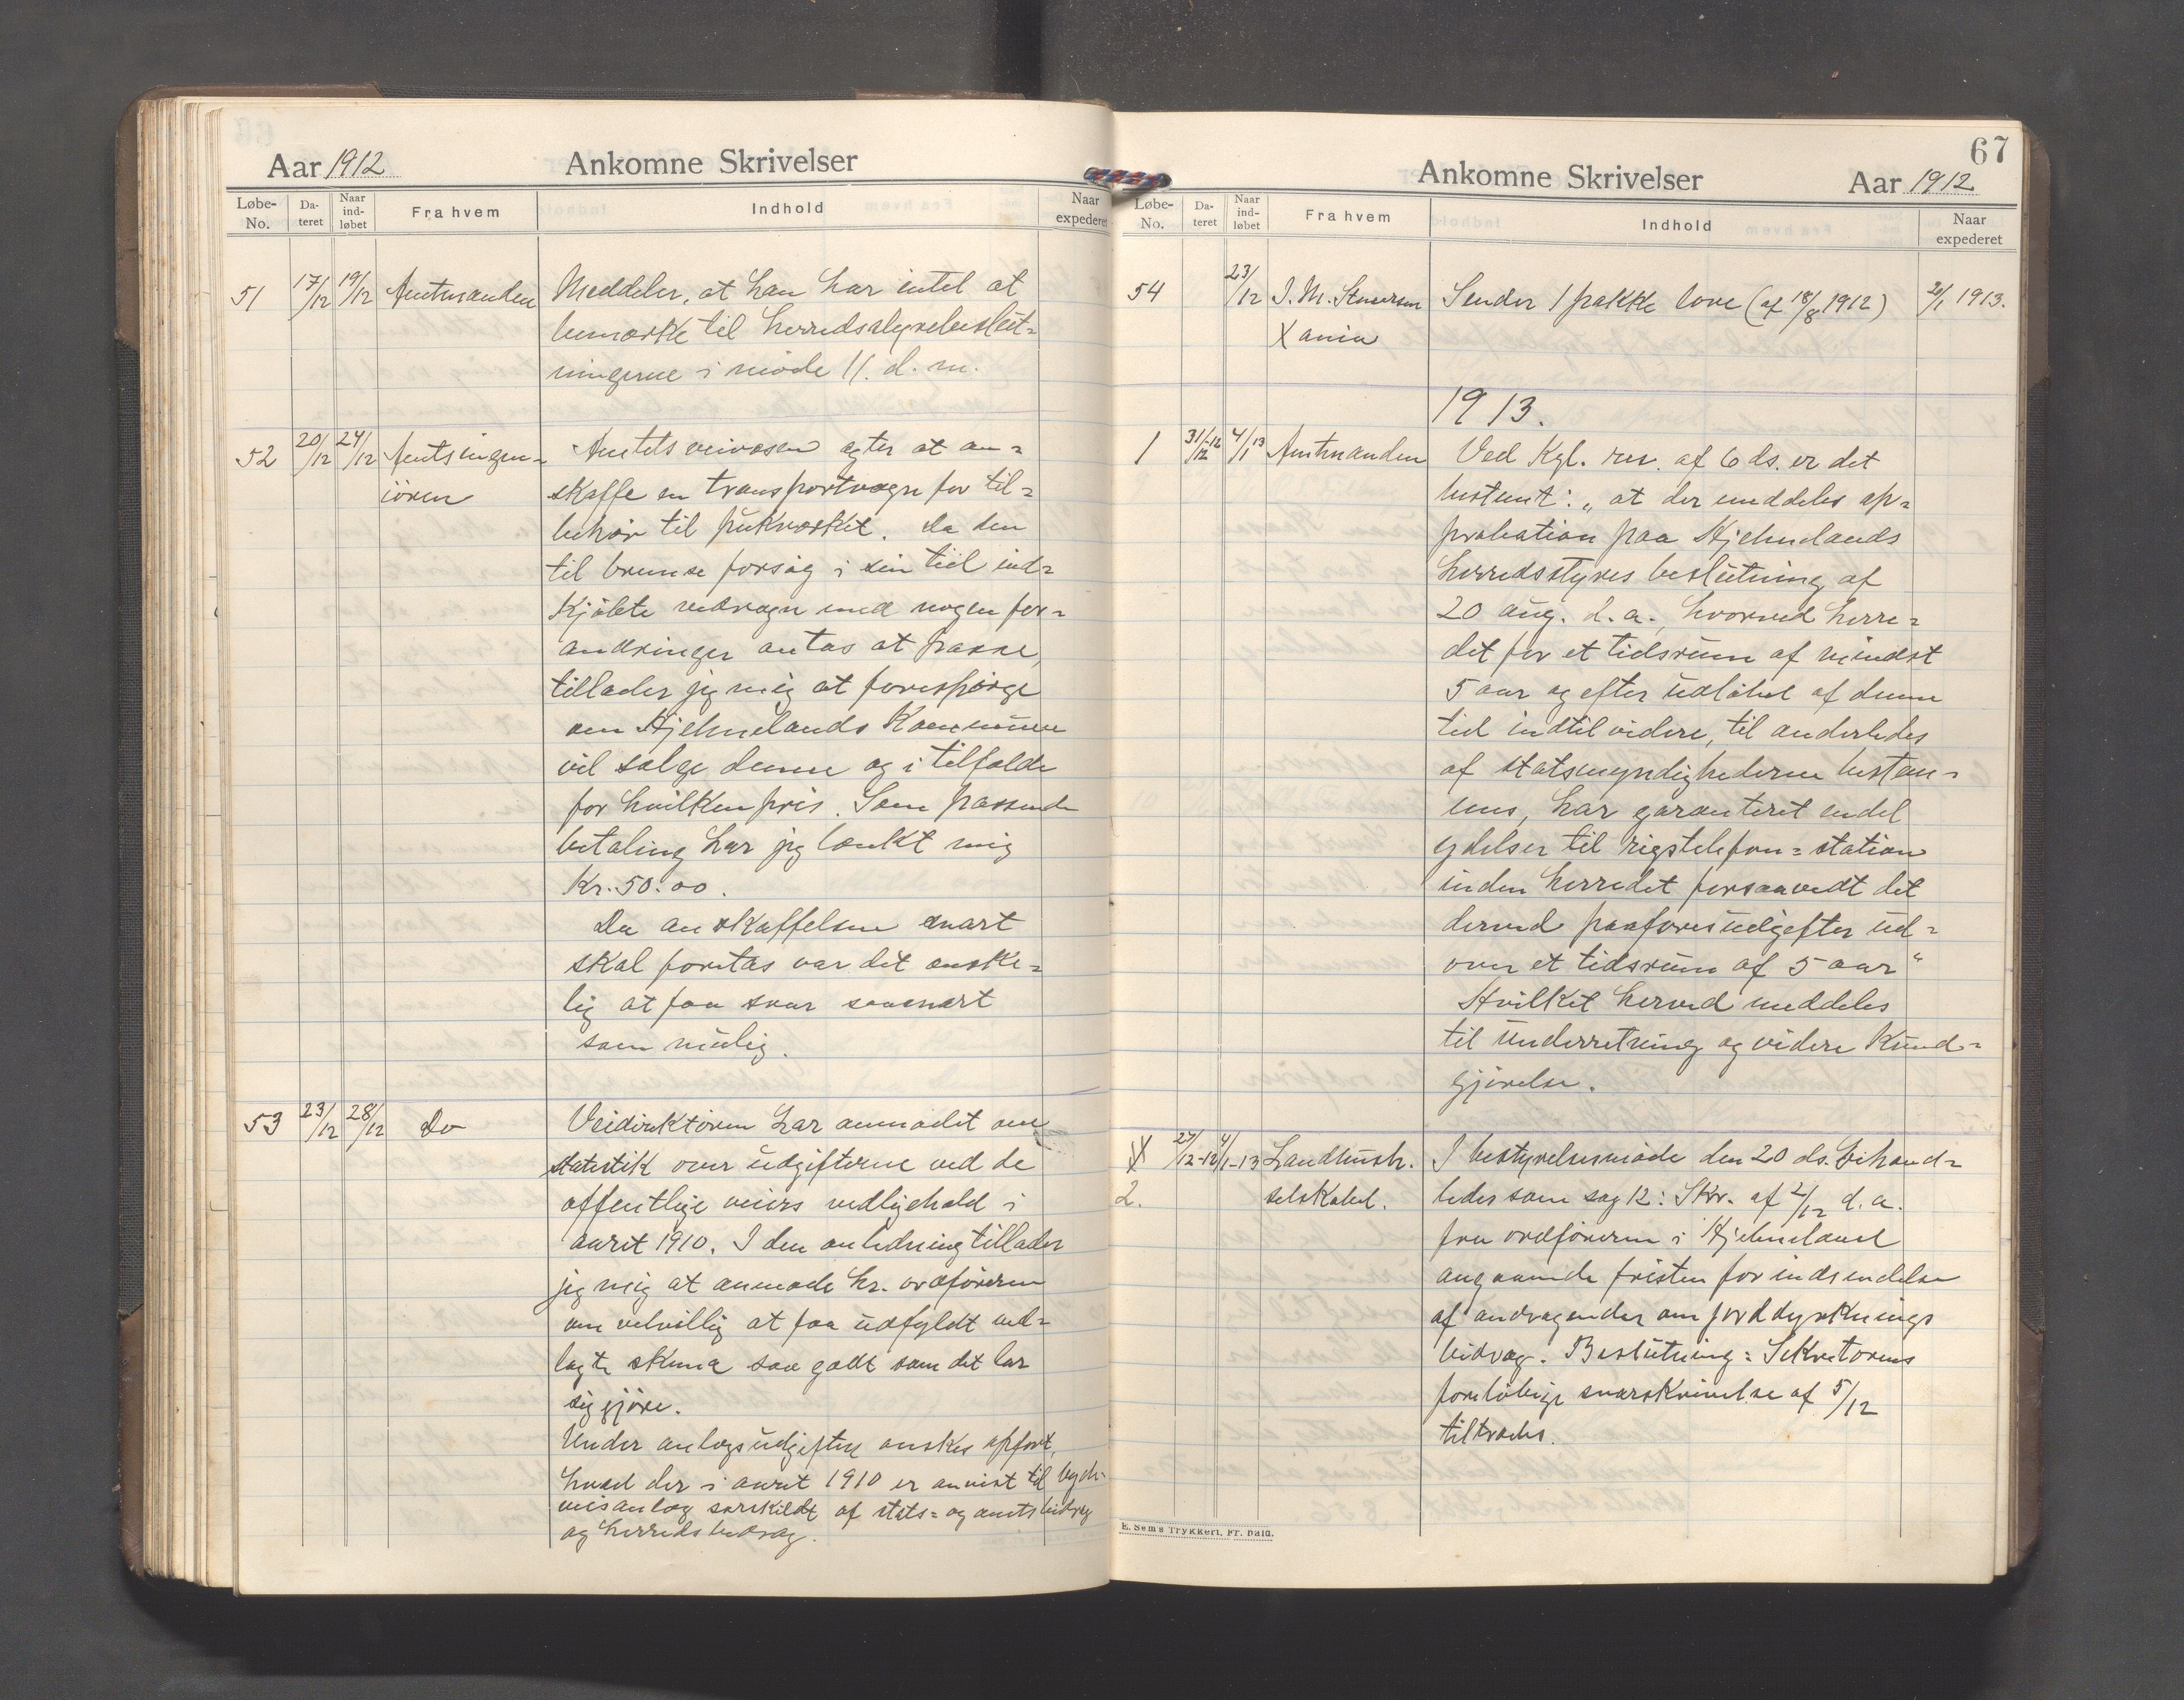 Aar 1912 Ankomne Skrivelser
Løbe-No. Da-teret Naar ind-løbet Fra hvem Indhold Naar expederet
51 17/12 19/12 Amtmanden Meddeler, at han har intet at
bemærke til herredsstyrebeslut=
ningerne i møde 11. d. m.
52 20/12 24/12 Amtsingen= Amtets veivæsen agter at an=
iøren skaffe en transportvogn for til=
behør til pukværket. Da den
til bremse forsøg i sin tid ind=
kjøbte vedvogn med nogen for=
andringer antas at passe,
tillader jeg mig at forespørge
om Hjelmelands Kommune
vil sælge denne og i tilfælde
for hvilken pris. Som passende
betaling har jeg tænkt mig
Kr. 50.00.
Da anskaffelsen snart
skal foretas var det ønske=
lig at faa svar saasnart
som mulig.
53 23/12 28/12 Do Veidirektøren har anmodet om
statistik over udgifterne ved de
offentlige veiers vedligehold i
aaret 1910. I den anledning tillader
jeg mig at anmode hr. ordføreren
om velvillig at faa udfyldt ved=
lagte skema saa godt som det lar
sig gjøre.
Under anlægsudgifter ønskes opført,
hvad der i aaret 1910 er anvist til bygde-
veisanlæg særskildt af stats= og amtsbidrag
og herredsbidrag.
67
Ankomne Skrivelser Aar 1912
Løbe-No. Da-teret Naar ind-løbet Fra hvem Indhold Naar expederet
54 23/12 J. M. Stenersen Sender 1 pakke love (af 18/8 1912) 20/1 1913.
Xania
1913.
1 31/12-12 4/1 13 Amtmanden Ved Kgl. res. af 6 ds. er det
bestemt: „at der meddeles ap=
probation paa Hjelmelands
herredsstyres beslutning af
20 aug. d. a., hvorved herre=
det for et tidsrum af mindst
5 aar og efter udløbet af denne
tid indtil videre, til anderledes
af statsmyndighederne bestem=
mes, har garanteret endel
ydelser til rigstelefon=station
inden herredet forsaavidt det
derved paaføres udgifter ud=
over et tidsrum af 5 aar“
Hvilket herved meddeles
til underretning og videre Kund=
gjørelse.
2. 27/12-12 4/1-13 Landhush. I bestyrelsesmøde den 20 ds. behand=
selskabet. ledes som sag 12: Skr. af 2/12 d. a.
fra ordføreren i Hjelmeland
angaaende fristen for indsendelse
af andragender om jorddyrknings
bidrag. Beslutning: Sekretærens
foreløbige svarskrivelse af 5/12
tiltrædes.
E. Sem's Trykkeri, Fr. hald.